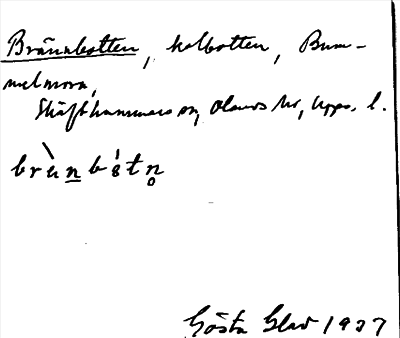 Brännbotten, kolbotten, Bum-
melmora,
Skäfthammars sn, Olands hd, Upps. l.
Gösta Glad 1937